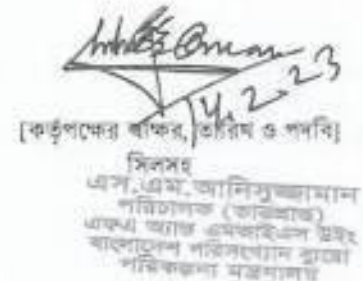 14.2.23
[কর্তৃপক্ষের স্বাক্ষর, তারিখ ও পদবি]
সিলসহ
এস.এম.আনিসুজ্জামান
পরিচালক (ভারপ্রাপ্ত)
এফএ অ্যান্ড এমআইএস উইং
বাংলাদেশ পরিসংখ্যান ব্যুরো
পরিকল্পনা মন্ত্রণালয়